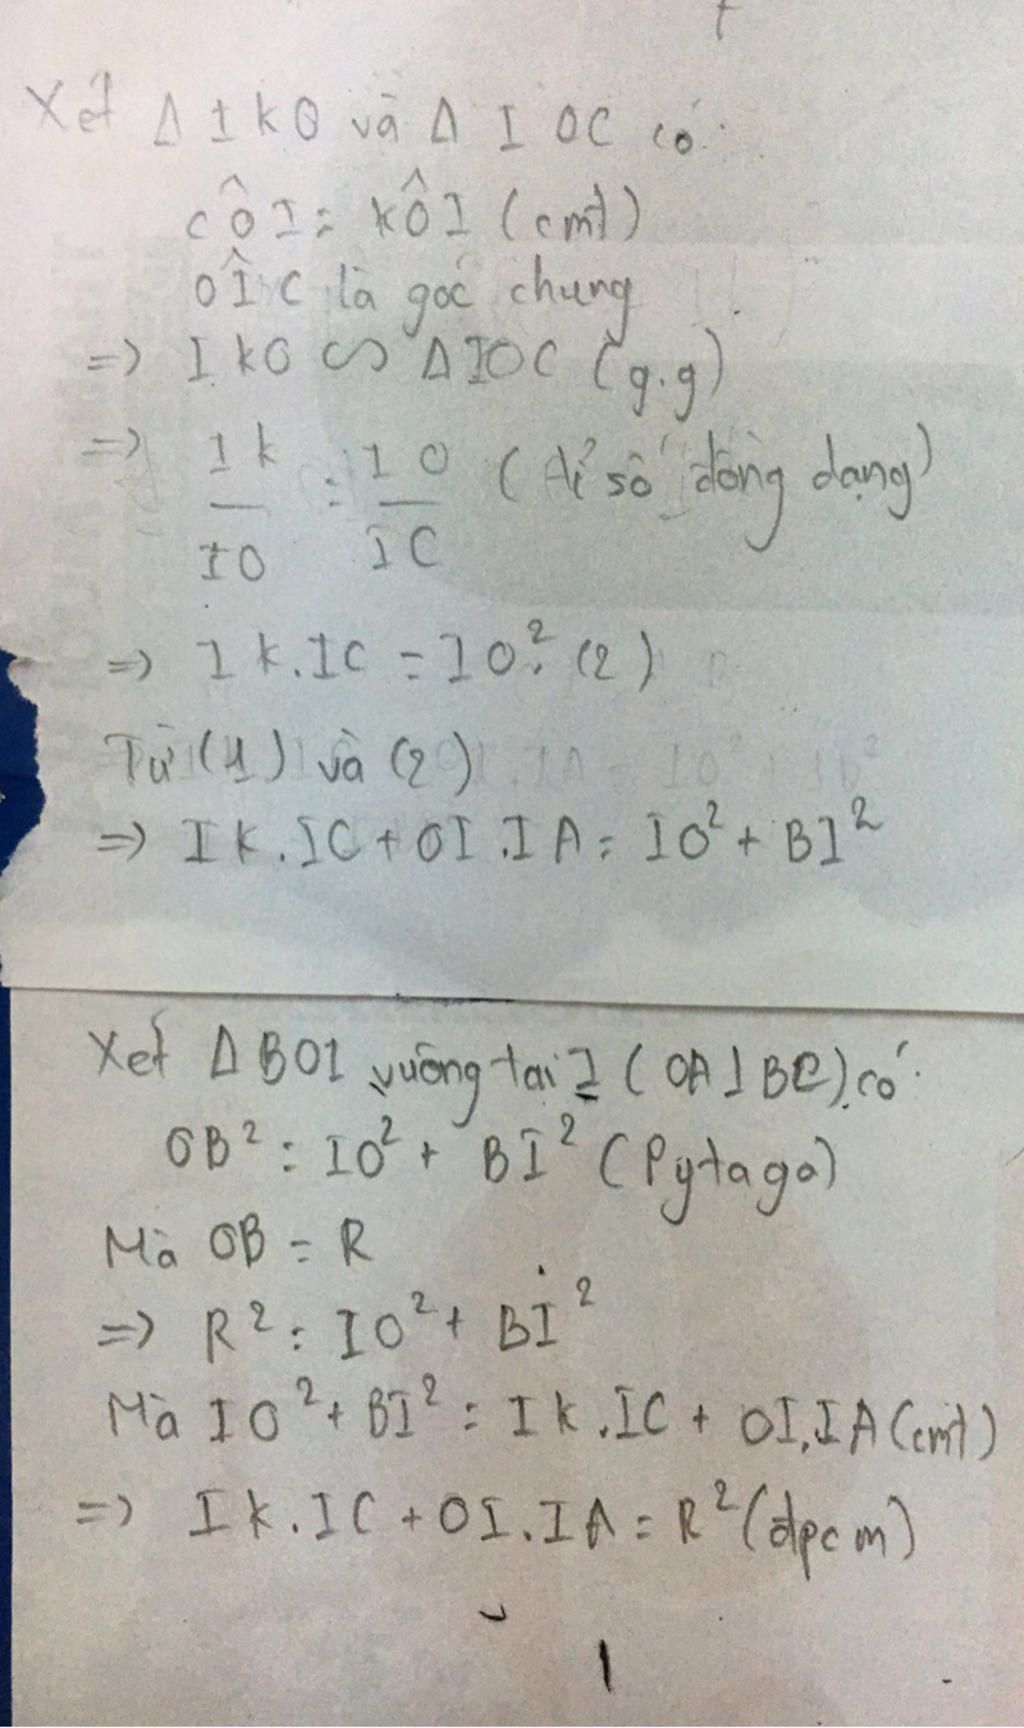 Xét Δ IKO và Δ IOC có:
CÔI = KÔI (cmt)
OÎC là góc chung
=> IKO ∽ ΔIOC (g.g)
=> IK/IO = IO/IC (tỉ số đồng dạng)
=> IK.IC = IO². (2)
Từ (1) và (2)
=> IK.IC + OI.IA = IO² + BI²
Xét Δ BOI vuông tại I (OA ⊥ BC) có:
OB² = IO² + BI² (Pytago)
Mà OB = R
=> R² = IO² + BI²
Mà IO² + BI² = IK.IC + OI.IA (cmt)
=> IK.IC + OI.IA = R² (đpcm)